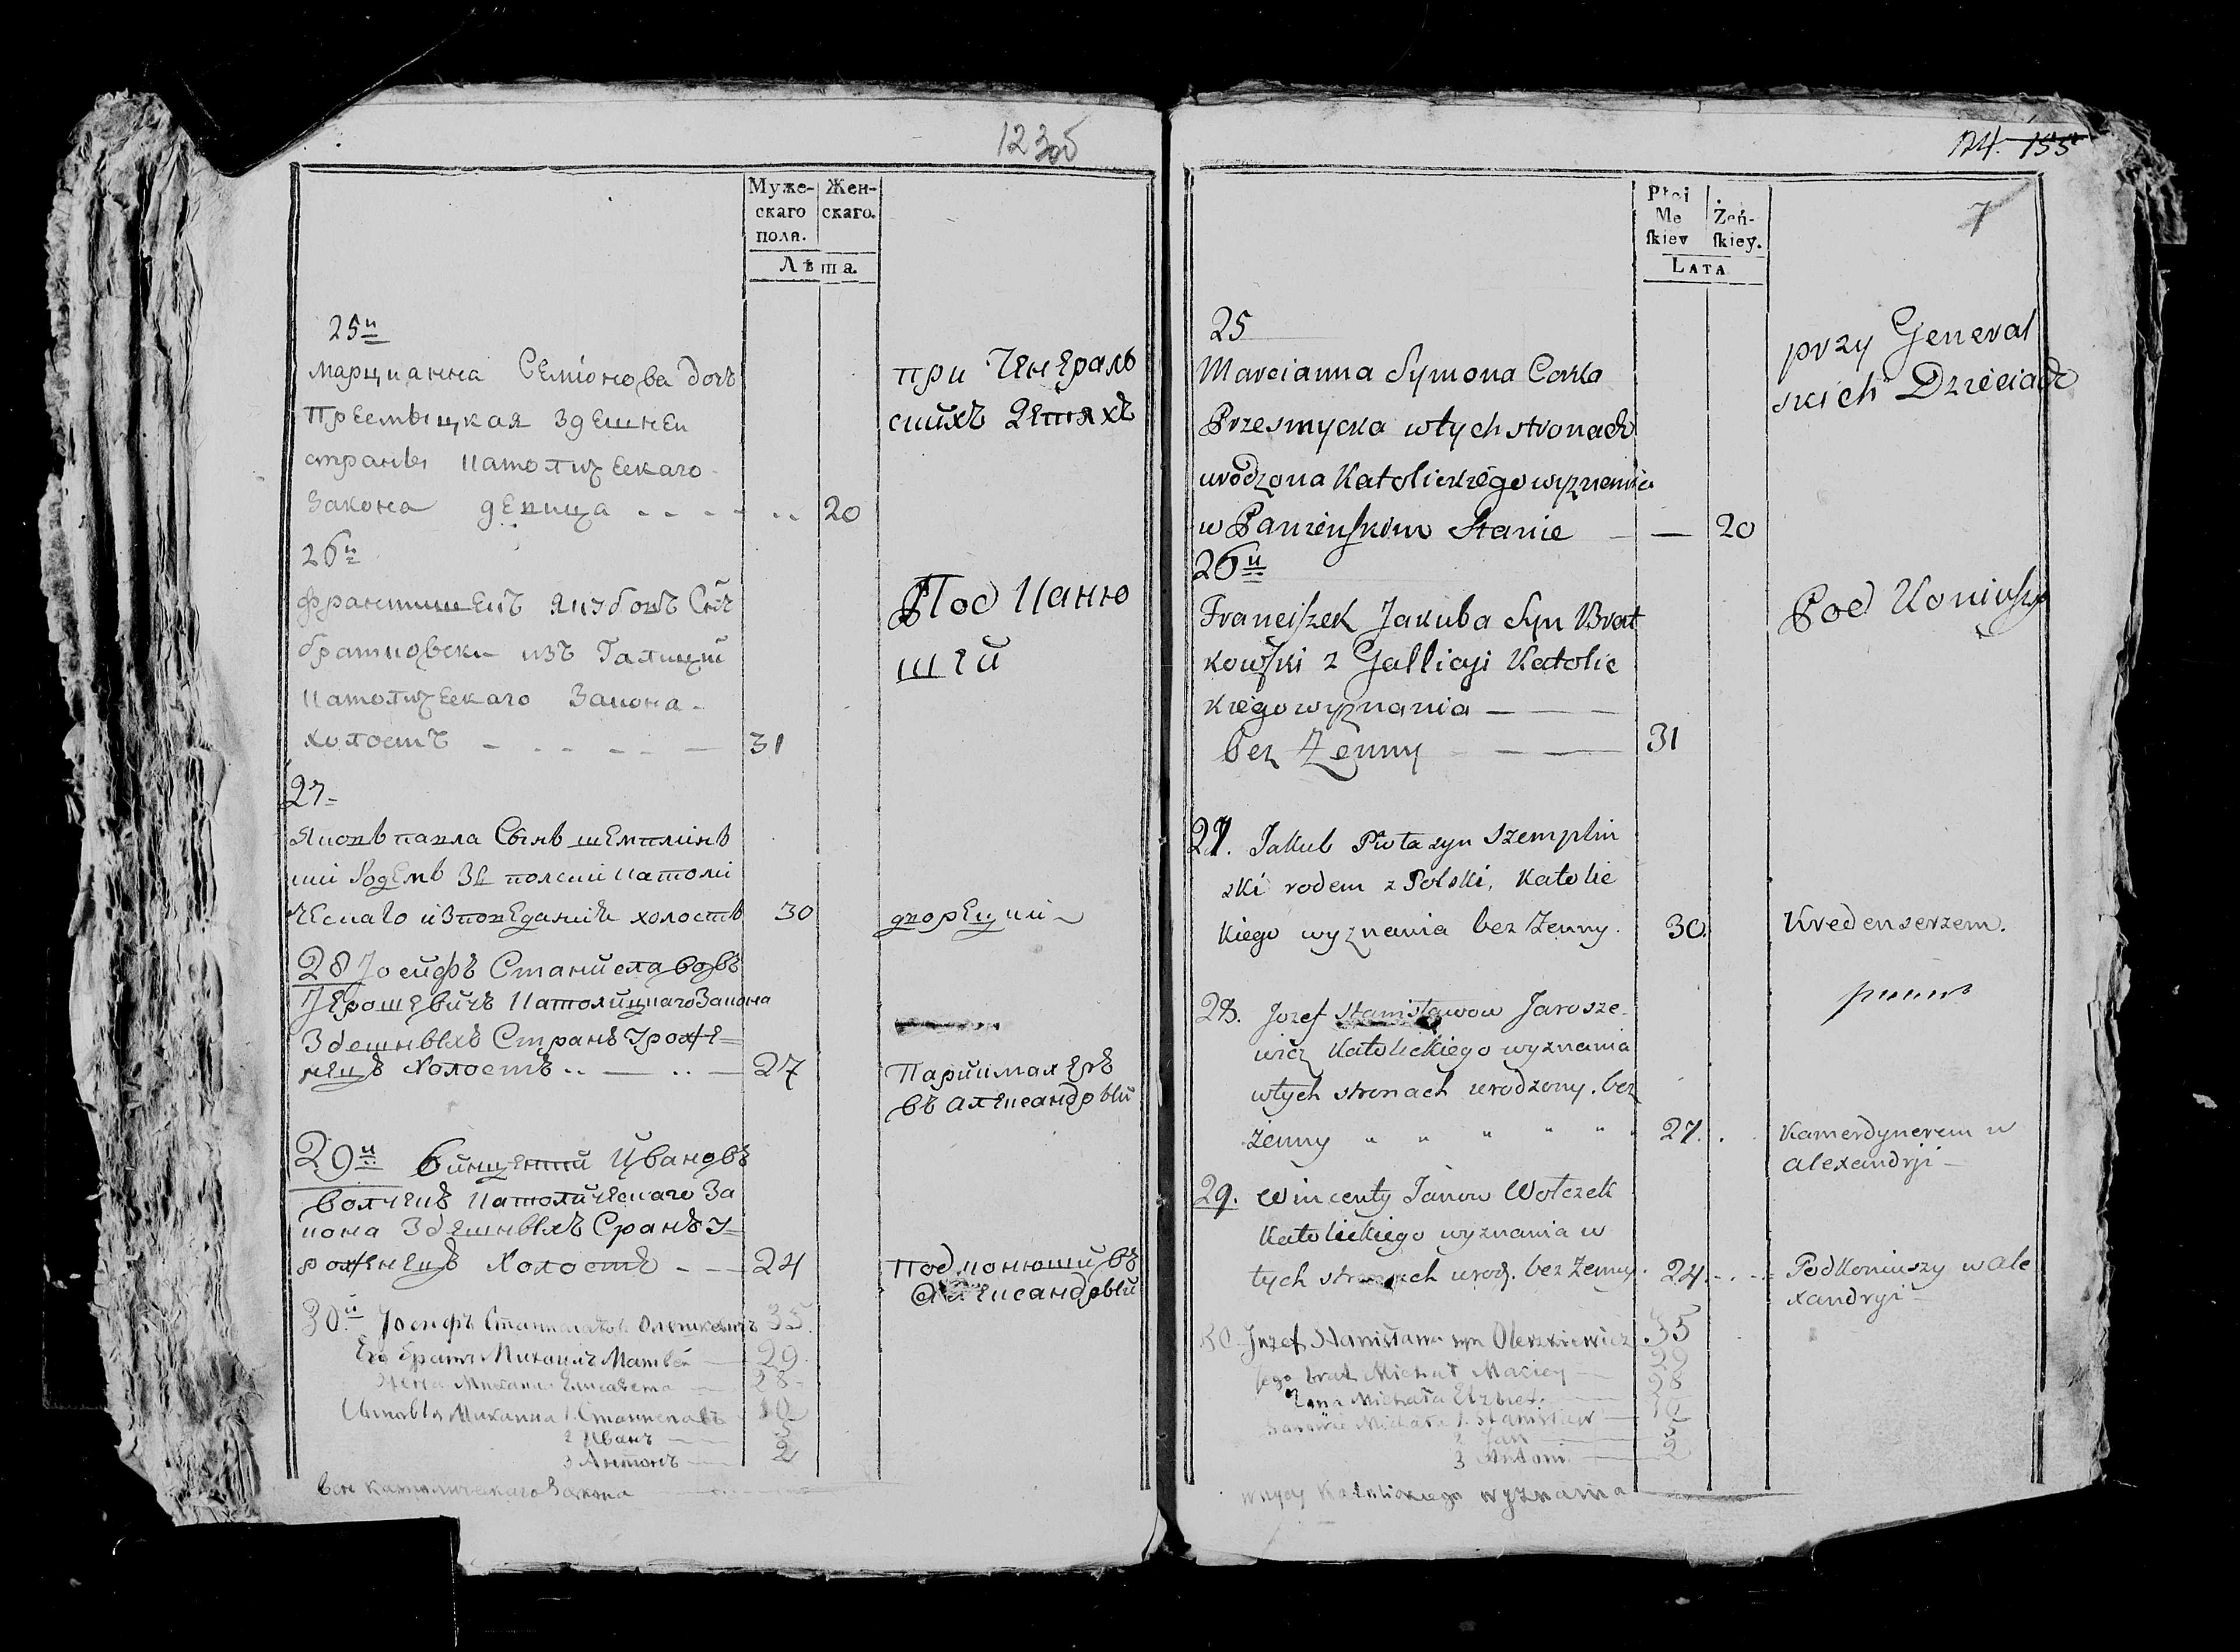 123об
Муже-
скаго
пола.
Жен-
скаго.
Лѣта.
25й
Марцианна Семіонова дочъ
Пресмыцкая здешнеи
страны католическаго
Закона девица
20
при Генераль
скихъ Детяхъ
26й
францишекъ Якубовъ Снъ
братковски изъ Галиции
католическаго Закона
холостъ
31
Под Каню
шій
27
Яковъ павла Сынъ шемплинъ
ски родемъ зъ полски католи
ческаго изповеданія холостъ
30
дворецки
28 Іосифъ Станиславовъ
Ерошевичъ Католицкаго Закона
Здешныхъ Странъ Уроже=
нецъ Холостъ
27
въ александрыи
29й Винцентий Ивановъ
Волчекъ Католическаго За
кона Здешныхъ Сранъ У=
роженецъ Холостъ
24
Подконюший въ
Александрыи
30й Іосифъ Станиславовъ Олешкевичъ 35
Его братъ Михаилъ Матвей 29
Жена Михаила Елисавета 28
Сыновья Михаила 1. Станиславъ 10
2 Иванъ 5
3 Антонъ 2
все католическаго Закона
124. 155
7
Płci
Mę
ſkiey
Żeń-
ſkiey.
LATA
25
Marcianna Symona Corka
Przesmycka wtych stronach
urodzona Katolickiego wyznania
w Panieńskim Stanie
20
przy General
skich Dzieciach
26й
Franciszek Jakuba Syn Brat
kowski z Gallicyi Katolic
kiego wyznania
bez Zenny
31
Pod Koniuszy
27. Jakub Pawła syn Szemplin
ski rodem z Polski, Katolic
kiego wyznania bez Zenny.
30.
Kredenserzem.
28. Jozef Stanisławow Jarosze-
wicz Katolickiego wyznania
wtych stronach urodzony. bez
żenny " " " " "
27.
Kamerdynerem w
alexandryi
29. Wincenty Janow Wołczek
Katolickiego wyznania w
tych stronach urod. bez Zenny.
24.
Podkoniuszy w Ale
xandryi
30 Jozef Stanisława syn Oleszkiewicz 35
jego brat Michał Maciey 29
Zona Michała Elzbieta 28
Synowie Michała 1. Stanisław 10
2 Jan 5
3 Antoni 2
wszyscy Katolickiego wyznania